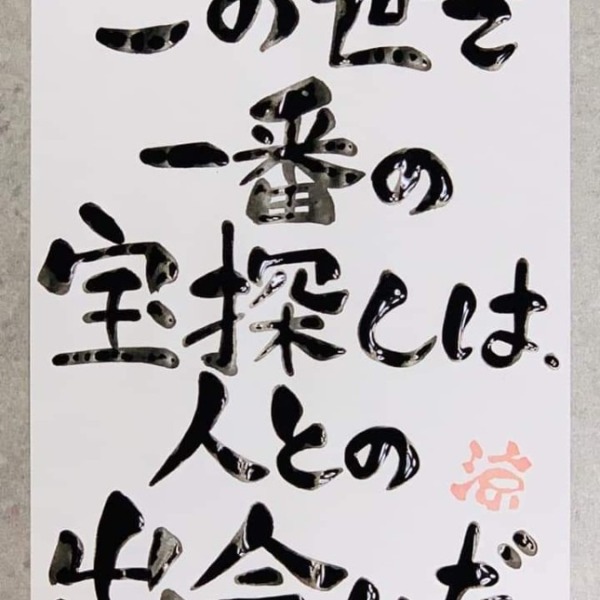 この世で
一番の
宝探しは、
人との
涼
出会いだ